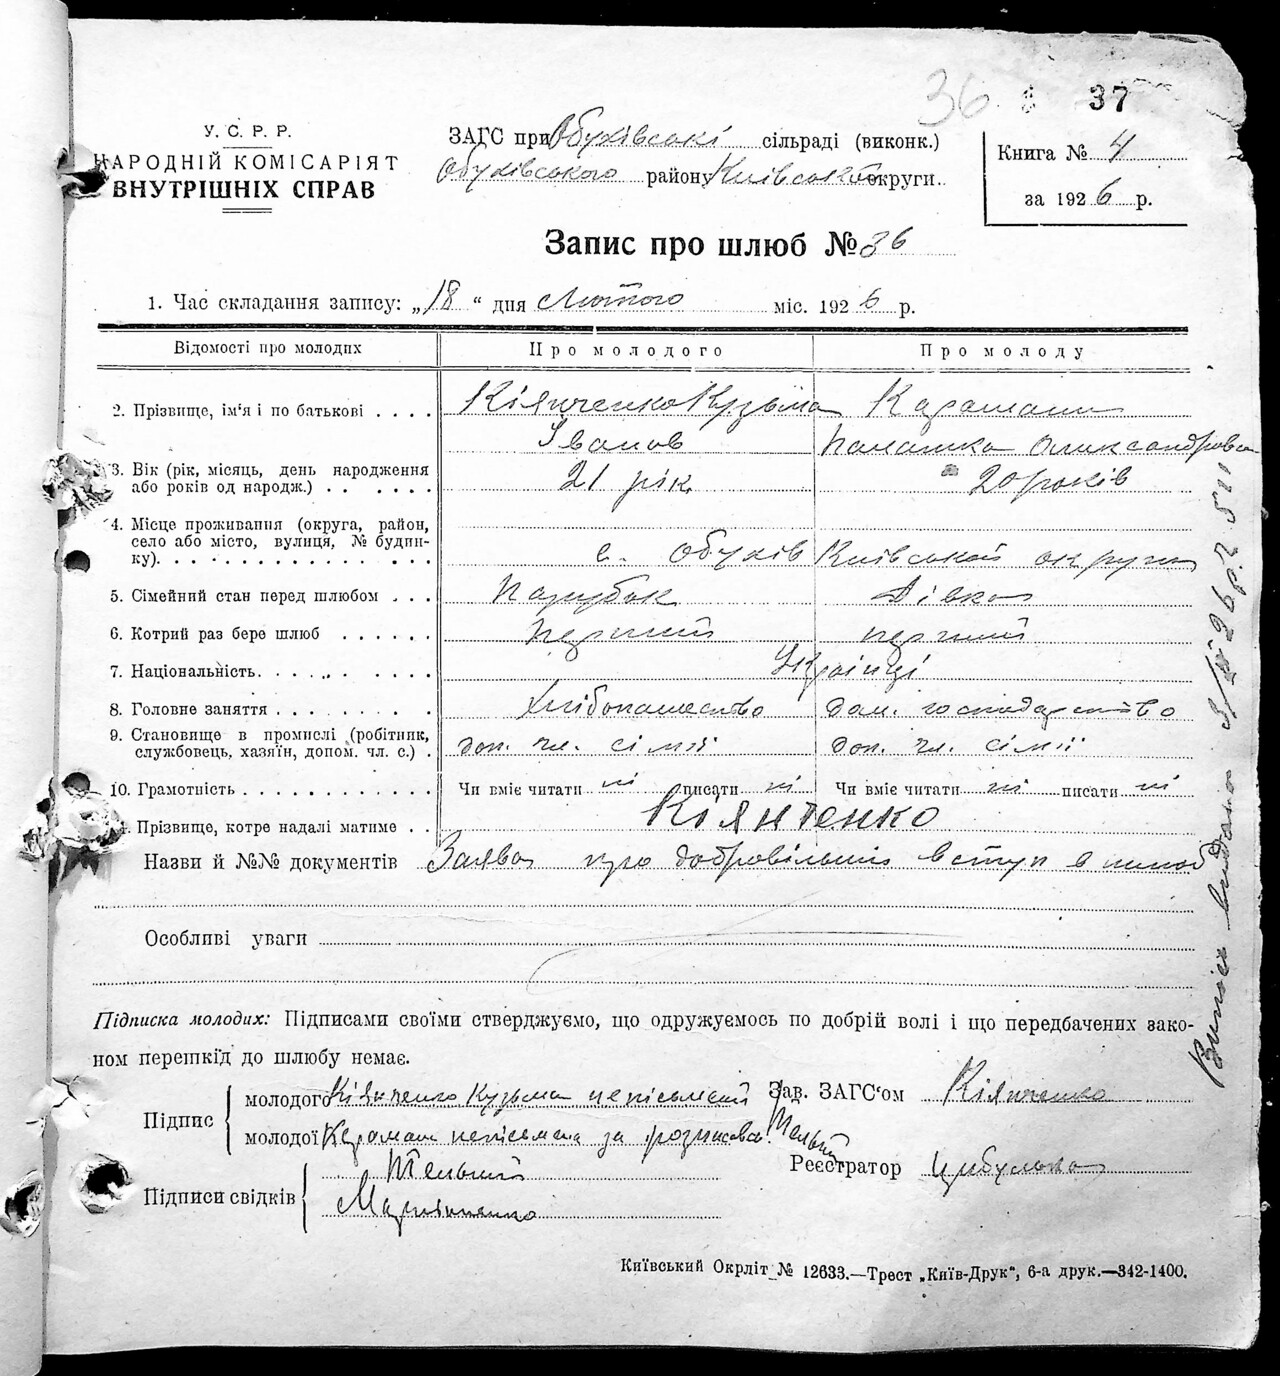 36 37
У. С. Р. Р.
НАРОДНІЙ КОМІСАРІЯТ
ВНУТРІШНІХ СПРАВ
ЗАГС при Обухівські сільраді (виконк.)
Обухівського району Київської округи
Книга № 4
за 1926 р.
Запис про шлюб № 36
1. Час складання запису: „18“ дня Лютого міс. 1926 р.
Відомості про молодих Про молодого Про молоду
2. Прізвище, ім'я і по батькові . . . . Кіянченко Кузьма Караман
Іванов Палашка Олександрова
3. Вік (рік, місяць, день народження
або років од народж.) . . . . . . 21 рік 20 років
4. Місце проживання (округа, район,
село або місто, вулиця, № будин-
ку). . . . . . . . . . . . . . . с. Обухів Київської округи
5. Сімейний стан перед шлюбом . . . Парубок Дівка
6. Котрий раз бере шлюб . . . . . . перший перший
7. Національність. . . . . . . . . . Українці
8. Головне заняття . . . . . . . . . Хлібопашество дом. господарство
9. Становище в промислі (робітник,
службовець, хазяїн, допом. чл. с.) . доп. чл. сімїї доп. чл. сімїї
10. Грамотність . . . . . . . . . . . Чи вміє читати ні писати ні Чи вміє читати ні писати ні
. Прізвище, котре надалі матиме . . КІЯНЧЕНКО
Назви й №№ документів Заява про добровільний вступ в шлюб
Особливі уваги
Підписка молодих: Підписами своїми стверджуємо, що одружуємось по добрій волі і що передбачених зако-
ном перешкід до шлюбу немає.
Підпис
молодого Кіянченко Кузьма непісьмений
молодої Караман непісьмена за розписався
Зав. ЗАГС'ом Кіянченко
Реєстратор Цибульова
Підписи свідків
Мартиненко
Випись видана
Київський Окрліт № 12633.—Трест „Київ-Друк“, 6-а друк.—342-1400.